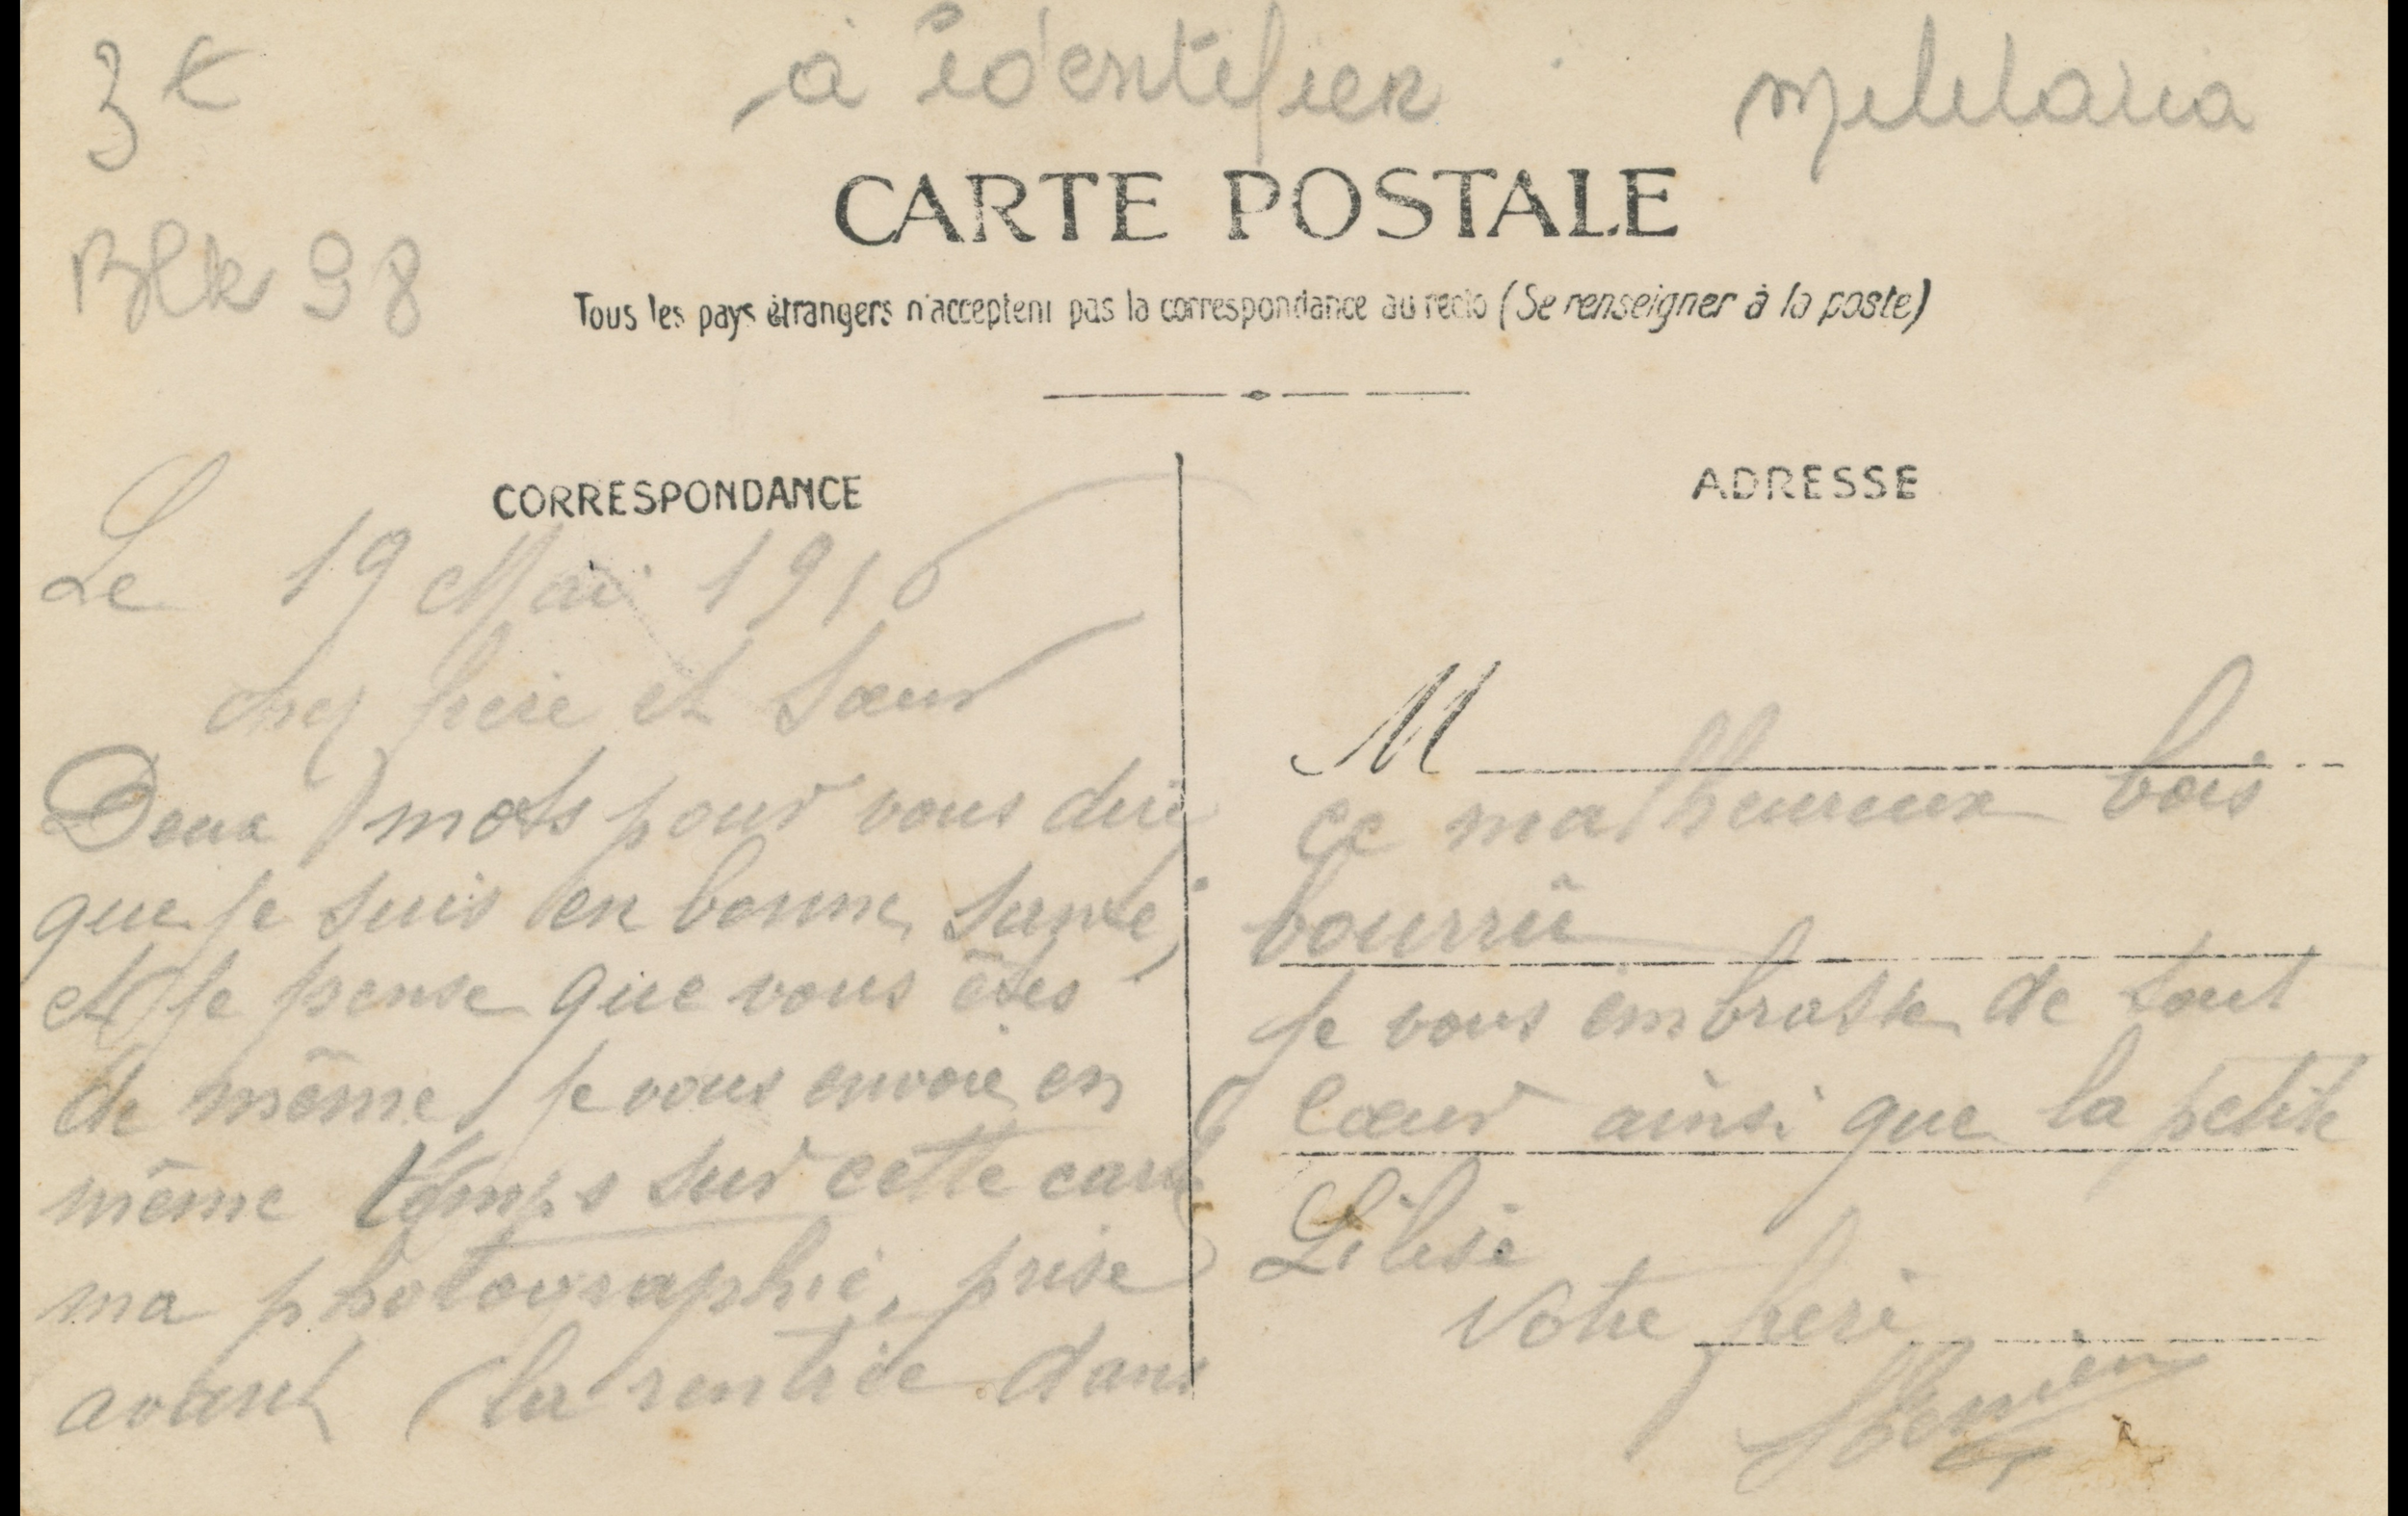 3 €
à identifier militaria
Blk 98
CARTE POSTALE
Tous les pays étrangers n'acceptent pas la correspondance au recto (Se renseigner à la poste)
CORRESPONDANCE
Le 19 Mai 1916
chez frère et Sœur
Deux mots pour vous dire
que je suis en bonne santé,
et je pense que vous êtes
de même je vous envoie en
même temps sur cette carte
ma photographie, prise
avant la rentrée dans
ADRESSE
M
ce malheureux bois
bourrû
Je vous embrasse de tout
Cœur ainsi que la petite
Votre frère